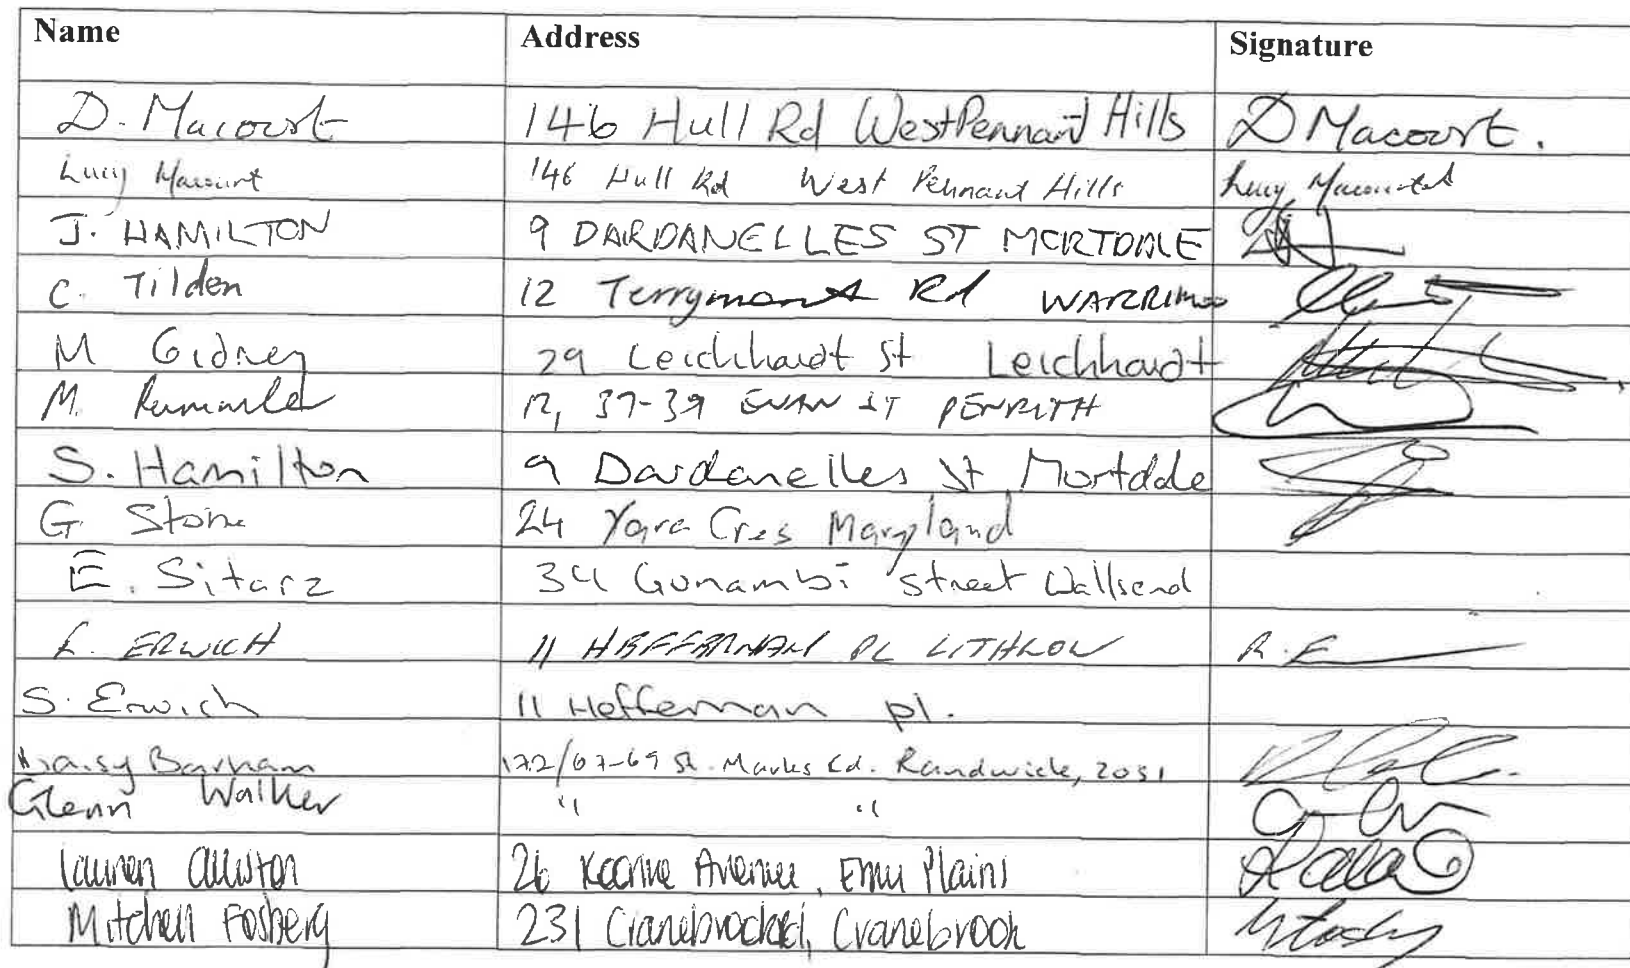 Name Address Signature
D. Macourt 146 Hull Rd West Pennant Hills D Macourt.
Lucy Macourt 146 Hull Rd West Pennant Hills Lucy Macourt
J. HAMILTON 9 DARDANELLES ST MORTDALE
C. Tilden 12 Terrymont Rd WARRIMOO
M Gidney 29 Leichhardt St Leichhardt
M. 12, 37-39 EVAN ST PENRITH
S. Hamilton 9 Dardanelles St Mortdale
G. Stone 24 Yara Cres Maryland
E. Sitarz 34 Gunambi Street Wallsend
ERWICH 11 HEFFERNAN PL LITHGOW R.E
S. Erwich 11 Heffernan pl.
Daisy Barham 172/67-69 St. Marks Rd. Randwick, 2031
Glenn Walker " "
Lauren Alliston 26 Avenue, Emu Plains
Mitchell Fosberg 231 Cranebrook Rd, Cranebrook